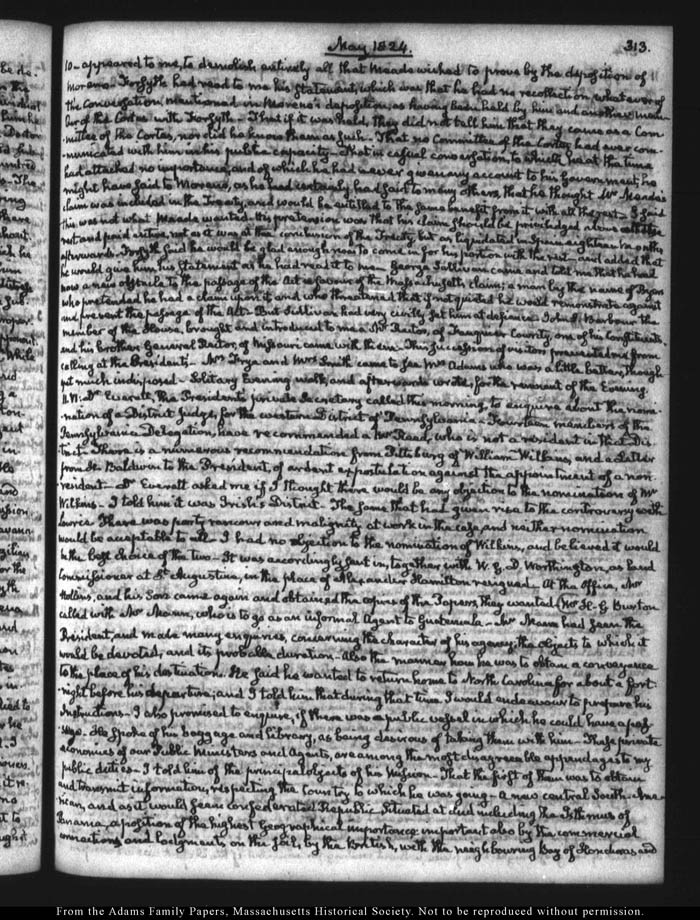 May 1824.
313.
10— appeared to me, to demolish entirely all that Meade wished to prove by the deposition of
Moreno. Forsyth had read to me his Statement, which was that he had no recollection whatever of
the Conversation mentioned in Moreno's deposition, as having been held by him and another mem-
ber of the Cortes with Forsyth— That if it was held, they did not tell him that they came as a Com-
mittee of the Cortes, nor did he know them as such— That no Committee of the Cortes had ever com-
municated with him in his public capacity— That in casual conversation, to which he at the time
had attached no importance, and of which he had never given any account to his Government, he
might have said to Moreno, as he had certainly had said to many others, that he thought Mr Meade's
claim was included in the Treaty, and would be entitled to the same benefit from it with all the rest— I said
this was not what Meade wanted. His pretension was that his claim should be privileged above all the
rest and paid entire, not as it was at the conclusion of the Treaty, but as liquidated in Spain eighteen months
afterwards. Forsyth said he would be glad enough now to come in for his portion with the rest— and added that
he would give him his Statement as he had read it to me— George Sullivan came and told me that he had
now a new obstacle to the passage of the Act in favour of the Massachusetts claim; a man by the name of
who pretended he had a claim upon it and who threatened that if not quieted he would remonstrate against
and prevent the passage of the Act— But Sullivan had very civilly set him at defiance. John S. Barbour the
member of the House, brought and introduced to me a Mr Rector, of Fauquier County, one of his Constituents,
and his brother General Rector, of Missouri came with them— This succession of visitors prevented me from
calling at the President's— Mrs Frye and Mrs Smith came to see Mrs Adams who was a little better, though
yet much indisposed— Solitary Evening walk, and afterwards wrote, for the remnant of the Evening.
11. Dr Everett, the President's private Secretary called this morning, to enquire about the nomi-
nation of a District Judge, for the western District of Pennsylvania— Fourteen members of the
Pennsylvania Delegation, have recommended a Mr Read, who is not a resident in that Dis-
trict— There is a numerous recommendation from Pittsburg of William Wilkins, and a Letter
from H. Baldwin to the President, of ardent expostulation against the appointment of a non-
resident— Dr Everett asked me if I thought there would be any objection to the nomination of Mr
Wilkins— I told him it was Irish's District— The same that had given rise to the controversy with
Lowrie. There was party rancour and malignity at work in the case, and neither nomination
would be acceptable to all— I had no objection to the nomination of Wilkins, and believed it would
be the best choice of the two— It was accordingly sent in, together with W. G. D. Worthington, as Land
Commissioner at St Augustine, in the place of Alexander Hamilton resigned— At the Office, Mr
Hollins, and his Sons came again and obtained the copies of the Papers, they wanted (Mr H. G. Burton
called with Mr Mann, who is to go as an informal Agent to Guatemala— Mr Mann had seen the
President, and made many enquiries, concerning the character of his agency; the objects to which it
would be devoted, and its probable duration— Also the manner how he was to obtain a conveyance
to the place of his destination. He said he wanted to return home to North Carolina for about a fort-
night before his departure; and I told him that during that time I would endeavour to prepare his
Instructions— I also promised to enquire, if there was a public vessel in which he could have a pas-
sage. He spoke of his baggage and library, as being desirous of taking them with him— These private
economies of our Public Ministers and Agents, are among the most disagreeable appendages to my
public duties— I told him of the principal objects of his Mission— That the first of them was to obtain
and transmit information, respecting the Country to which he was going— a new central South Ame-
rican, and as it would seem confederated Republic Situated at and including the Isthmus of
Panama, a position of the highest Geographical importance important also by the commercial
connections and lodgments on the soil, by the British, with the neighbouring Bay of Honduras and
From the Adams Family Papers, Massachusetts Historical Society. Not to be reproduced without permission.